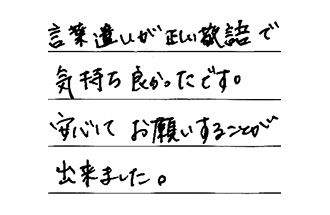 言葉遣いが正しい敬語で
気持ち良かったです。
安心してお願いすることが
出来ました。